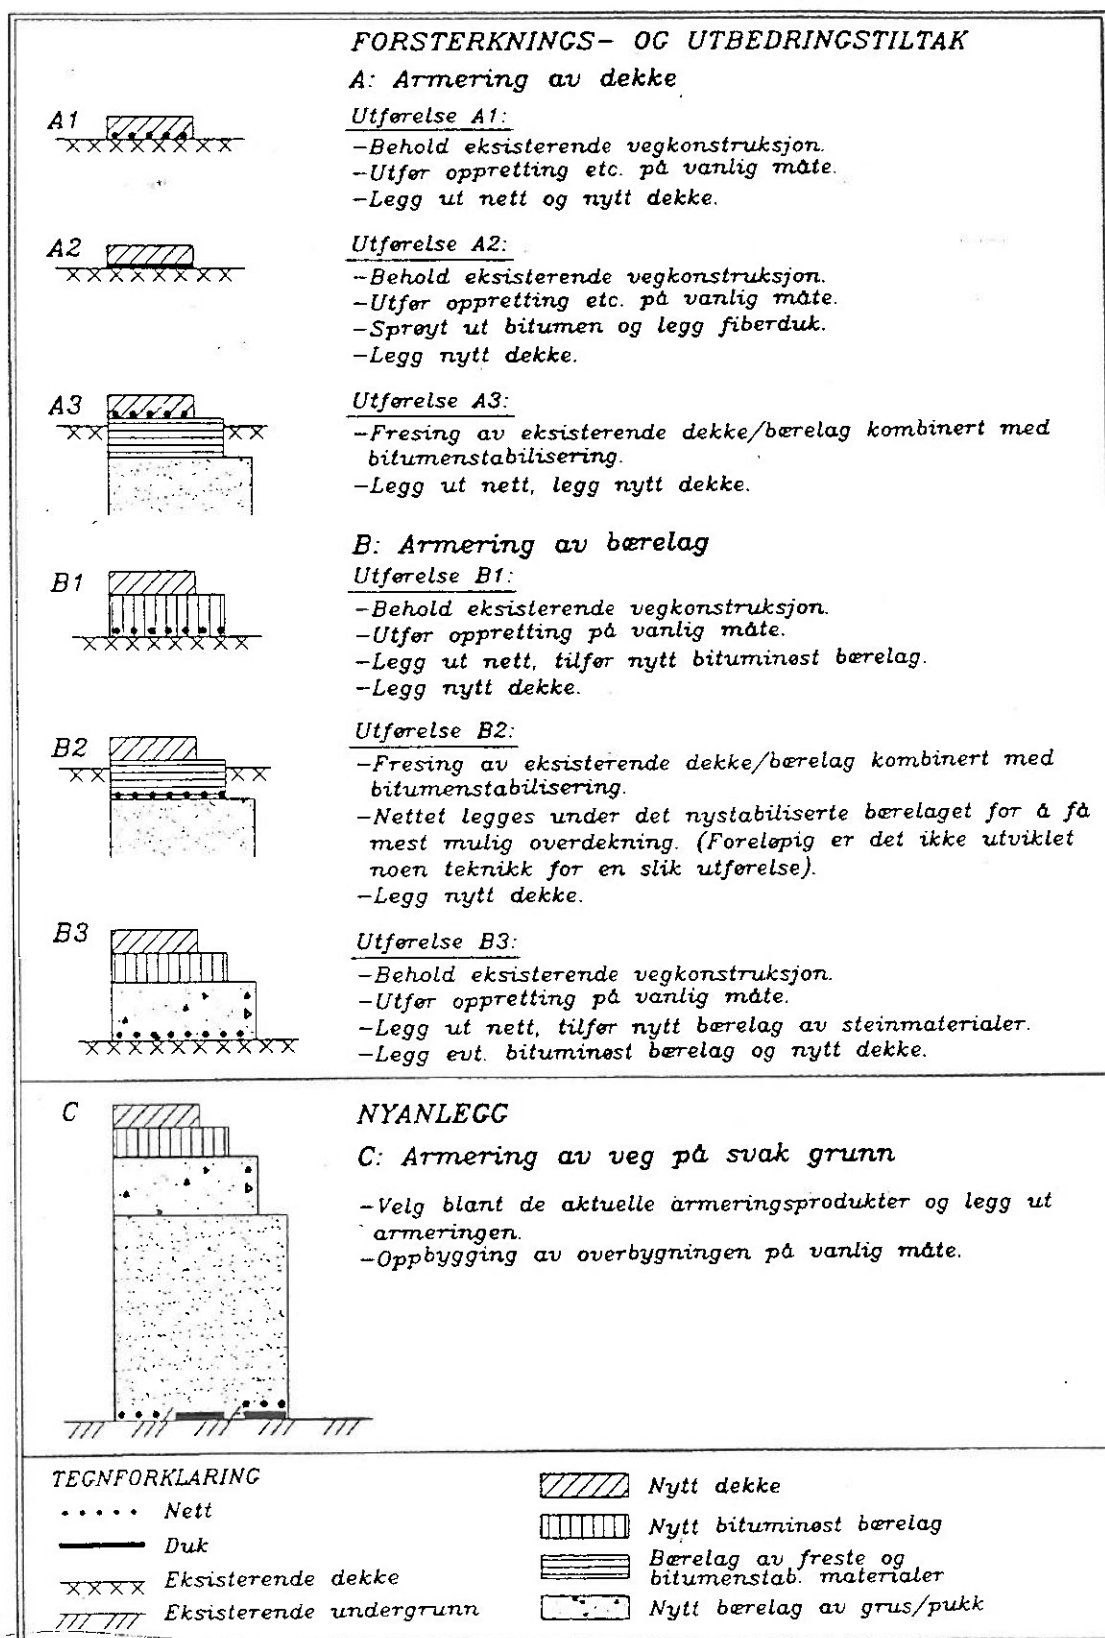 FORSTERKNINGS- OG UTBEDRINGSTILTAK
A: Armering av dekke
A1
Utførelse A1:
-Behold eksisterende vegkonstruksjon.
-Utfør oppretting etc. på vanlig måte.
-Legg ut nett og nytt dekke.
A2
Utførelse A2:
-Behold eksisterende vegkonstruksjon.
-Utfør oppretting etc. på vanlig måte.
-Sprøyt ut bitumen og legg fiberduk.
-Legg nytt dekke.
A3
Utførelse A3:
-Fresing av eksisterende dekke/bærelag kombinert med
bitumenstabilisering.
-Legg ut nett, legg nytt dekke.
B: Armering av bærelag
B1
Utførelse B1:
-Behold eksisterende vegkonstruksjon.
-Utfør oppretting på vanlig måte.
-Legg ut nett, tilfør nytt bituminøst bærelag.
-Legg nytt dekke.
B2
Utførelse B2:
-Fresing av eksisterende dekke/bærelag kombinert med
bitumenstabilisering.
-Nettet legges under det nystabiliserte bærelaget for å få
mest mulig overdekning. (Foreløpig er det ikke utviklet
noen teknikk for en slik utførelse).
-Legg nytt dekke.
B3
Utførelse B3:
-Behold eksisterende vegkonstruksjon.
-Utfør oppretting på vanlig måte.
-Legg ut nett, tilfør nytt bærelag av steinmaterialer.
-Legg evt. bituminøst bærelag og nytt dekke.
C
NYANLEGG
C: Armering av veg på svak grunn
-Velg blant de aktuelle armeringsprodukter og legg ut
armeringen.
-Oppbygging av overbygningen på vanlig måte.
TEGNFORKLARING
Nett
Duk
Eksisterende dekke
Eksisterende undergrunn
Nytt dekke
Nytt bituminøst bærelag
Bærelag av freste og
bitumenstab. materialer
Nytt bærelag av grus/pukk